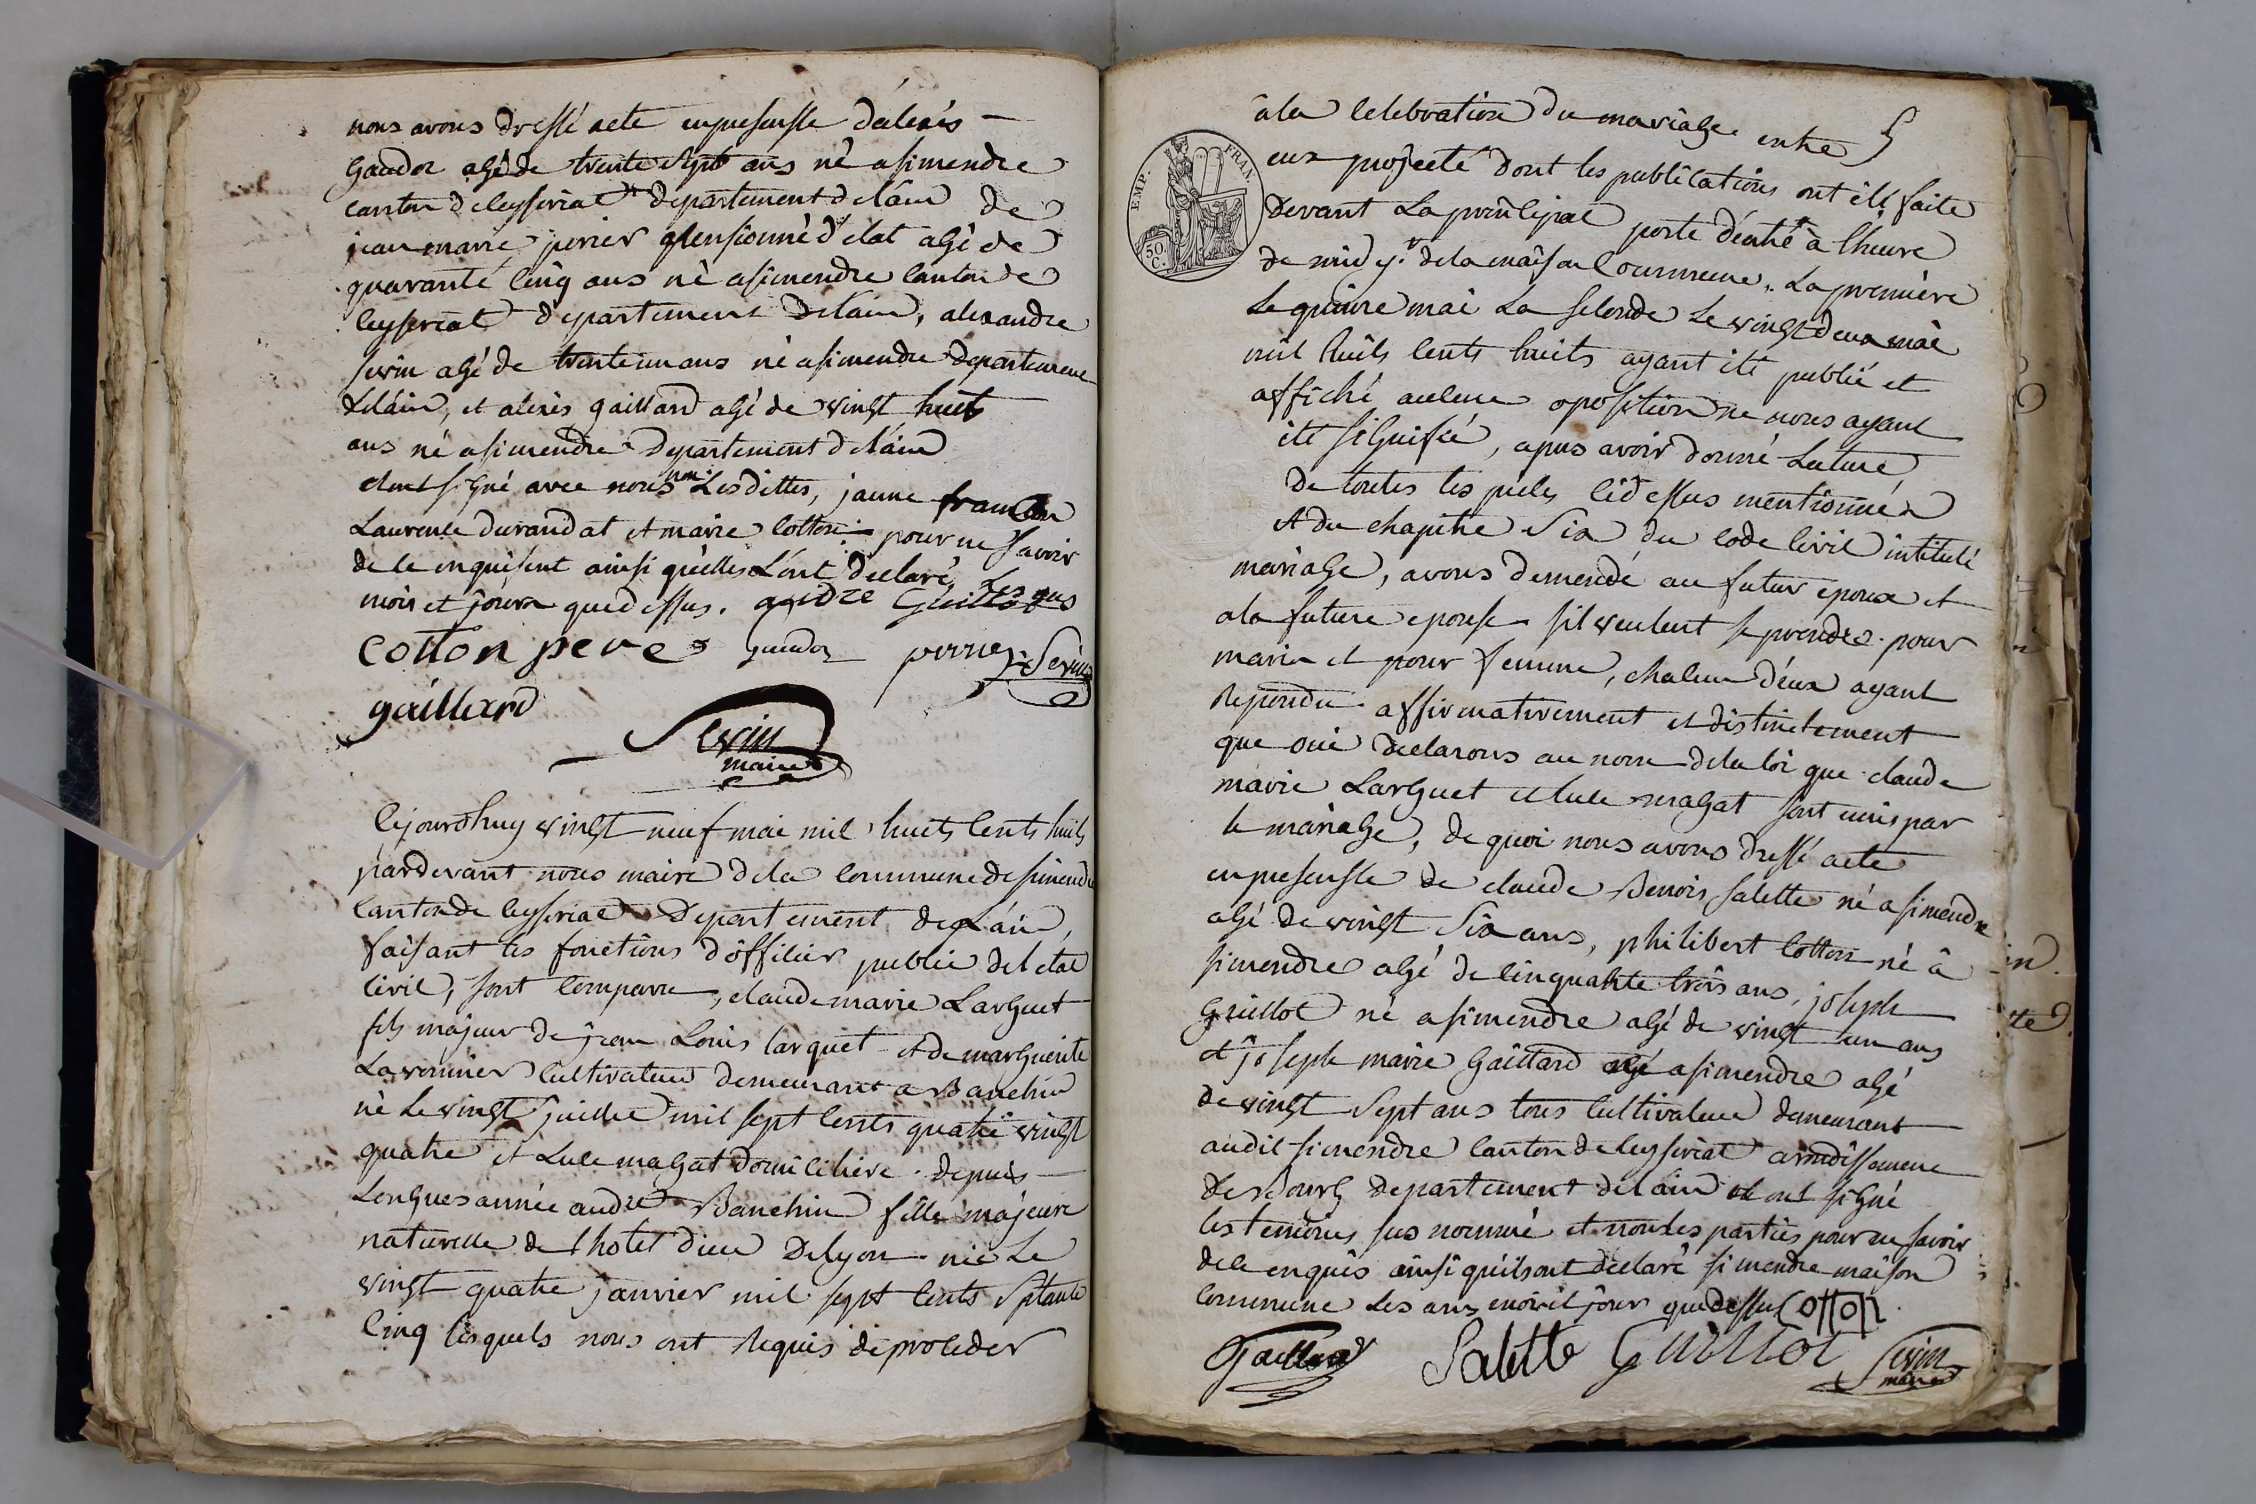 nous avons dressé acte enpresensse d'alexis
Gaudoz agé de trente sept ans né asimendre
canton deleyseriat departement delâin de
jean marie perier pensionné d'etat agé de
quarante cinq ans né asimendre canton de
ceyseriat departement delain, alexandre
sevin agé de trente un ans né asimendre departement
delâin, et alexis gaillard agé de vingt huit
ans né asimendre departement delain
et ont signé avec nous non Lesdittes, janne
Laurence durandat et marie Cotton pour ne savoir
de le enquisent ainsi quelles L'ont declaré, Les ans
mois et jours quedessus. andre Guillot
cotton pere Gaudoz perrier Sevin
gaillard
Sevin
maire
Cejourdhuy vingt neuf mai mil huits cents huits
pardevant nous maire dela commune de simendre
Canton de Ceyseriat Departement de Lâin,
faisant les fonctions d'officier public del etat
Civil, sont comparu, claude marie Larguet
fils majeur de jean Louis larguet et de marguerite
cultivateur demeurant a Banchin
né Le vingt juillet mil sept cents quatre vingt
quatre et Luce magat domiciliere depuis
Longues année audit Banchin fille majeure
naturelle de lhotel dieu Delyon née Le
vingt quatre janvier mil sept cents septante
Cinq lesquels nous ont Requis de proceder
EMP. FRAN.
50 C.
âla celebration du mariage entre
eux projecté dont les publications ont été faite
Devant La principal porte d'entré à lheure
de midy dela maison Commune. La première
Le quinze mai La seconde Le vingt deux mai
mil huits cents huits ayant été publié et
affiché aucune oposition ne nous ayant
été signifiée, apres avoir donné Lecture
De toutes les pieces cidessus mentionnée
et du chapitre Six du code Civil intitulé
mariage, avons demendé au futur epoux et
ala future epouse sil veulent se prendre pour
mari et pour femme, chacun d'eux ayant
Repondu affirmativement et distinctement
que oui declarons au nom dela loi que claude
marie Larguet et luce magat sont unis par
le mariage, de quoi nous avons dressé acte
enpresensse de claude Benois Salette né asimendre
agé de vingt Six ans, philibert Cotton né â
simendre agé de cinquante trois ans, joseph
Guillot né asimendre agé de vingt un ans
et joseph marie Gaillard asimendre agé
de vingt Sept ans tous Cultivateur demeurant
audit simendre Canton de Ceyseriat arrondissement
De Bourg Departement de lâin et ont signé
les temoins sus nommé et non les parties pour ne savoir
dele enquis ainsi quils ont declaré simendre maison
Commune Les ans mois et jour quedessus Cotton
Gaillard Salette Guillot Sevin
maire